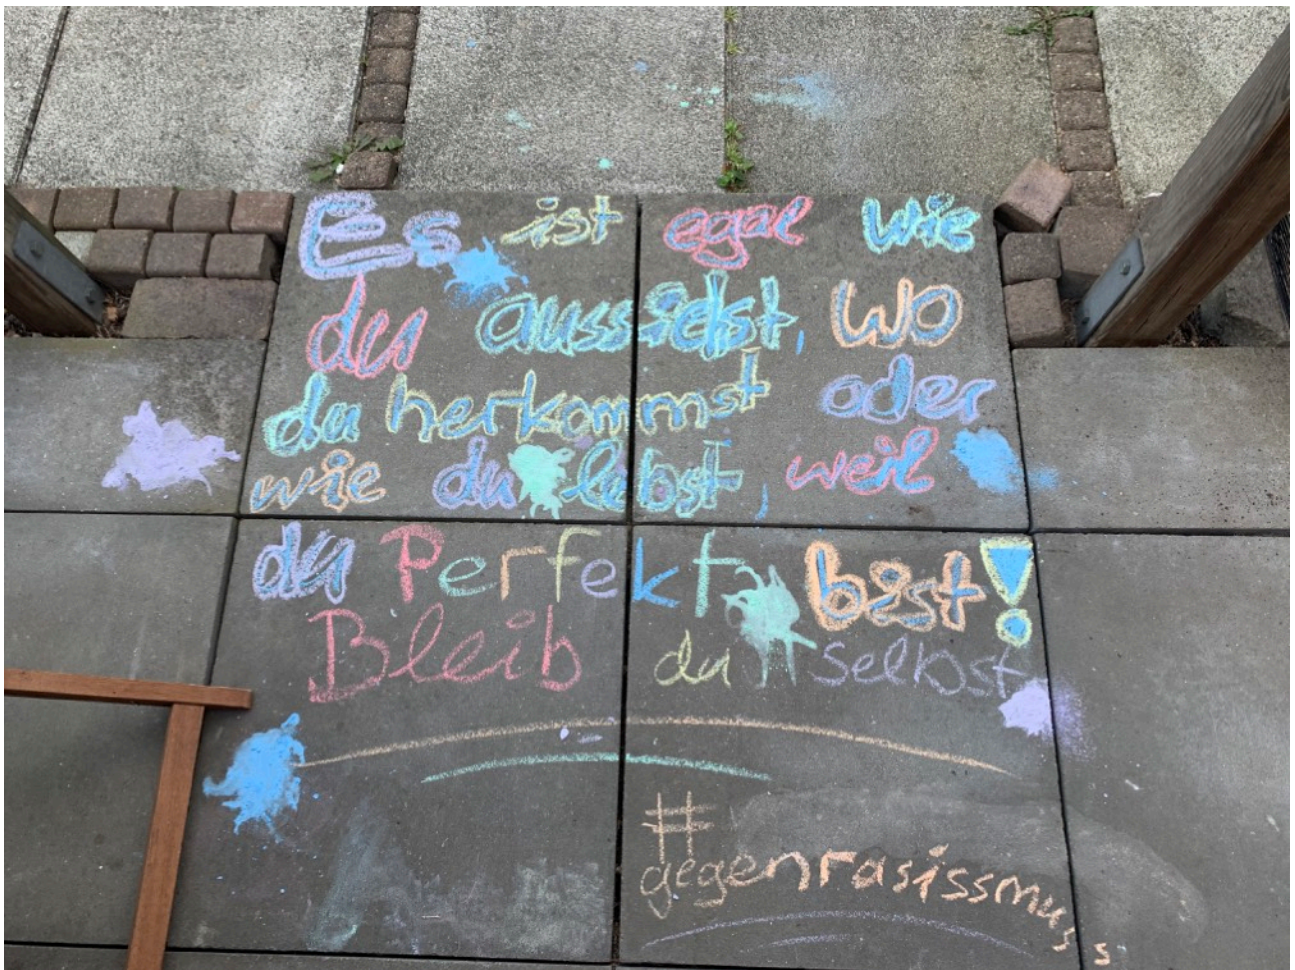 Es ist egal wie
du aussiehst, wo
du herkommst oder
wie du lebst, weil
du Perfekt bist!
Bleib du selbst
#
gegenrasissmuss